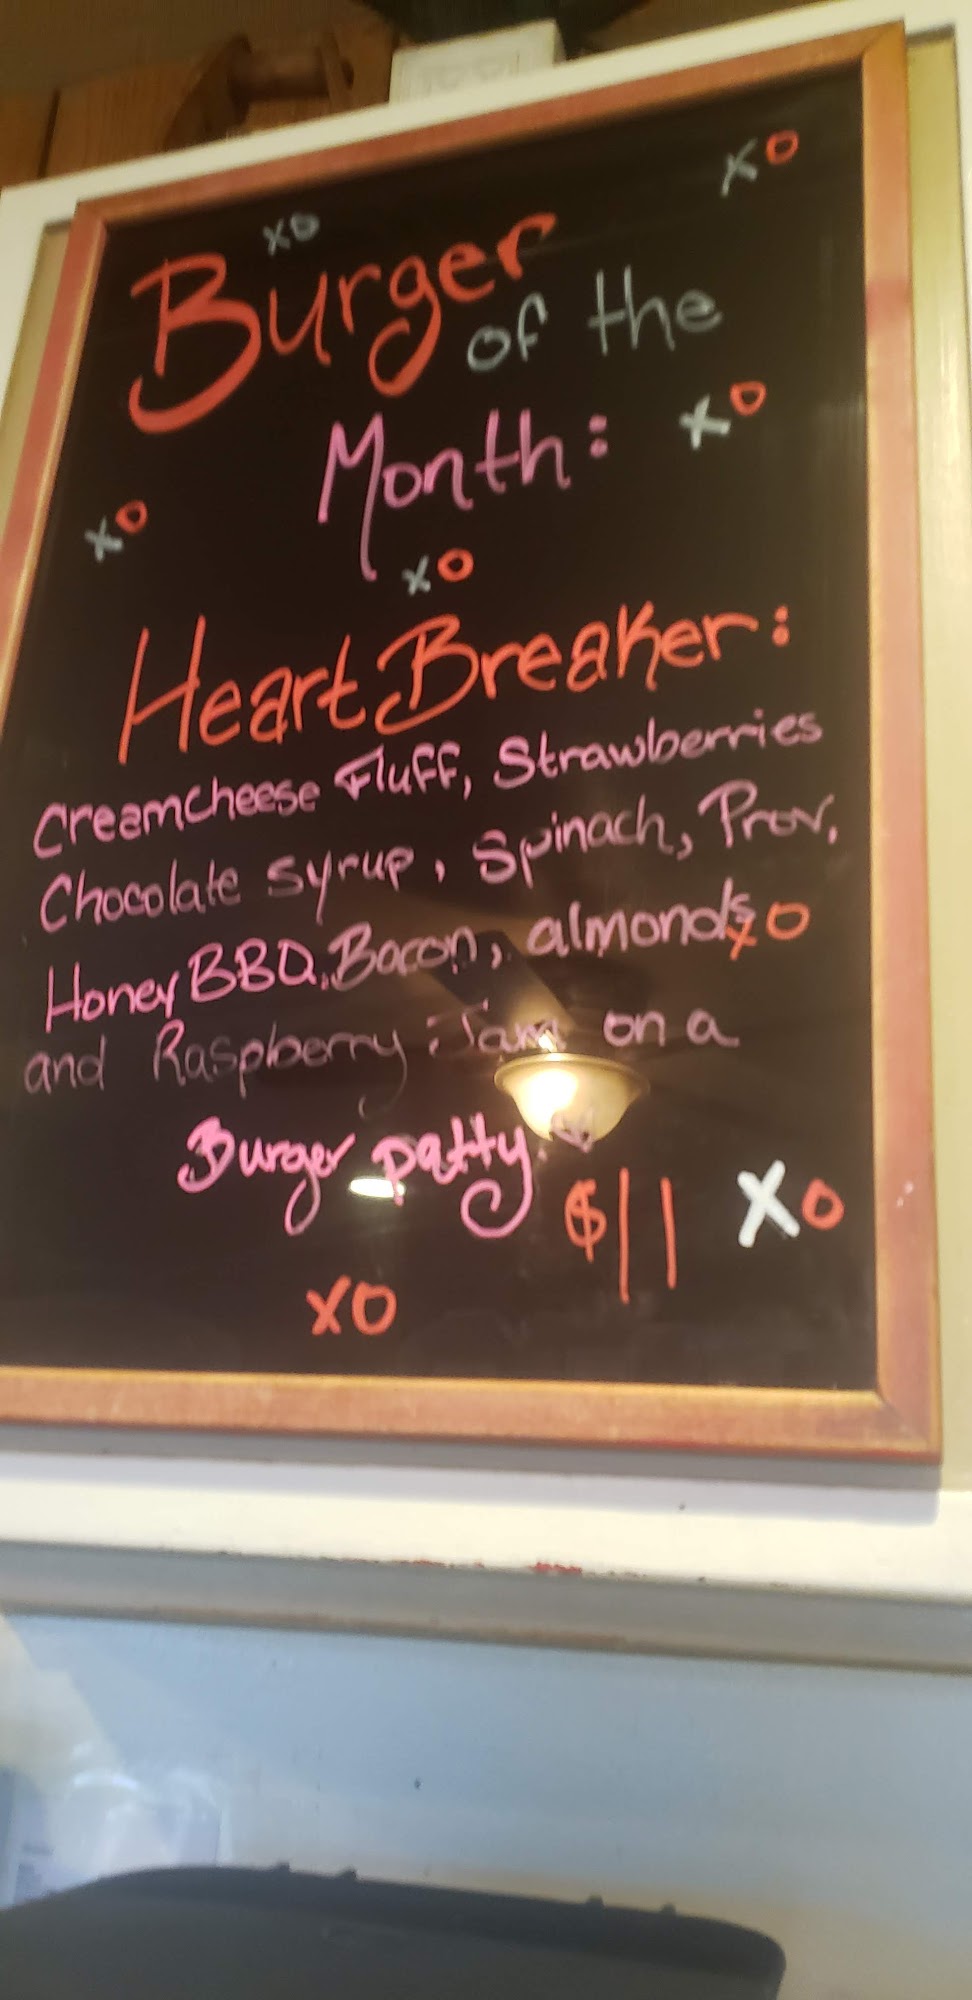 xo
xo
Burger
of the
Month:
xo
xo
xo
HeartBreaker:
Creamcheese Fluff, Strawberries
Chocolate syrup, Spinach, Prov,
Honey BBQ, Bacon, almonds
xo
and Raspberry Jam on a
Burger patty
$11
xo
xo